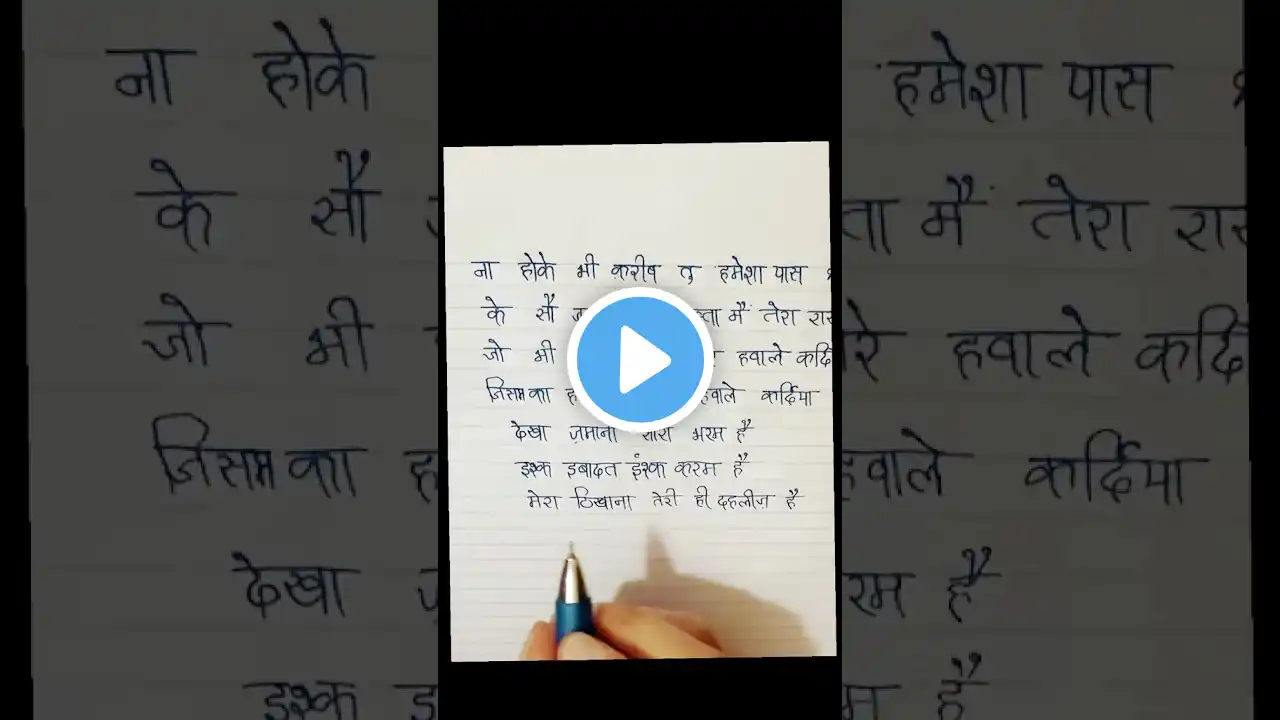 ना होके भी क़रीब तु हमेशा पास
के सौ मैं तेरा
जो भी हवाले कर्दि
जिसम का हवाले कर्दिया
देखा ज़माना सारा भरम है
इश्क इबादत इंश्क करम है
मेरा ठिखाना तेरी ही दहलीज़ है